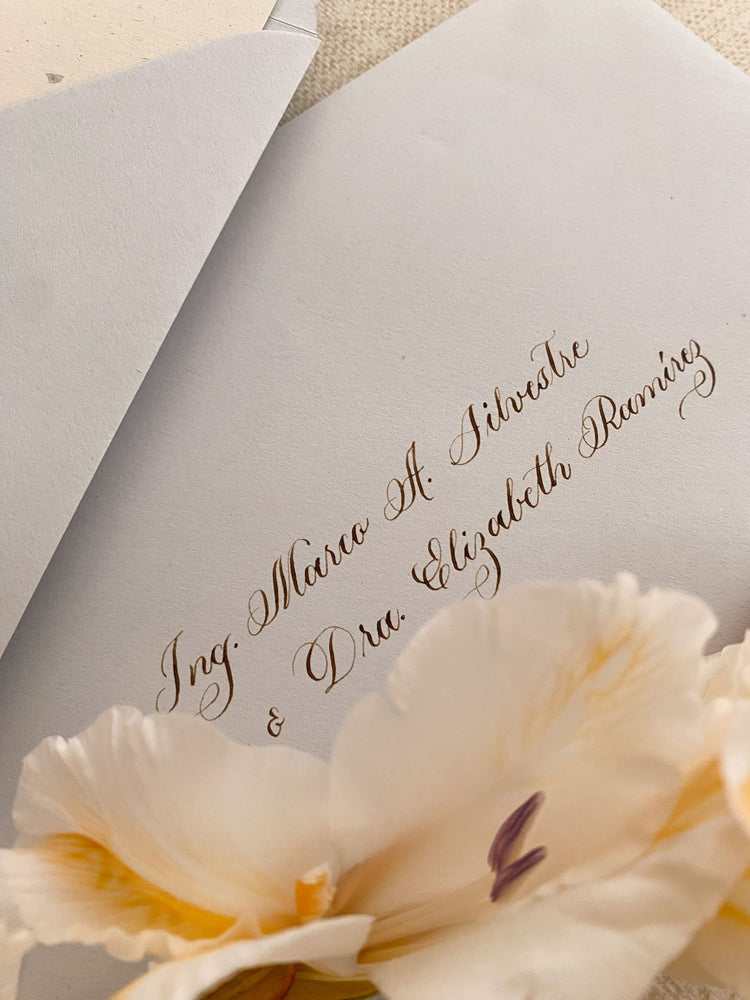 Ing. Marco A. Silvestre
& Dra. Elizabeth Ramírez